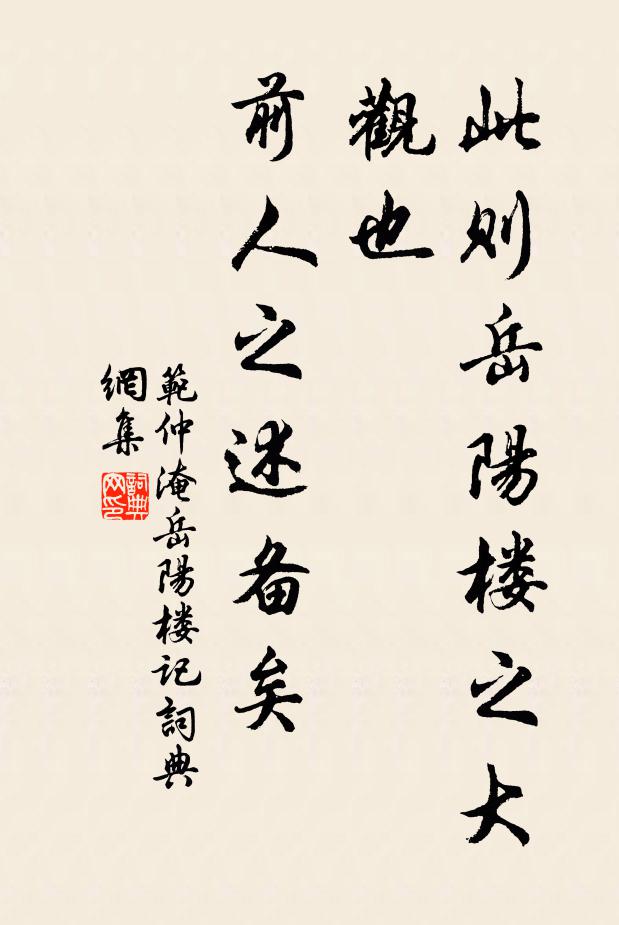 此则岳陽楼之大
觀也
前人之述备矣
範仲淹岳陽楼记詞典
網集
詞典网印